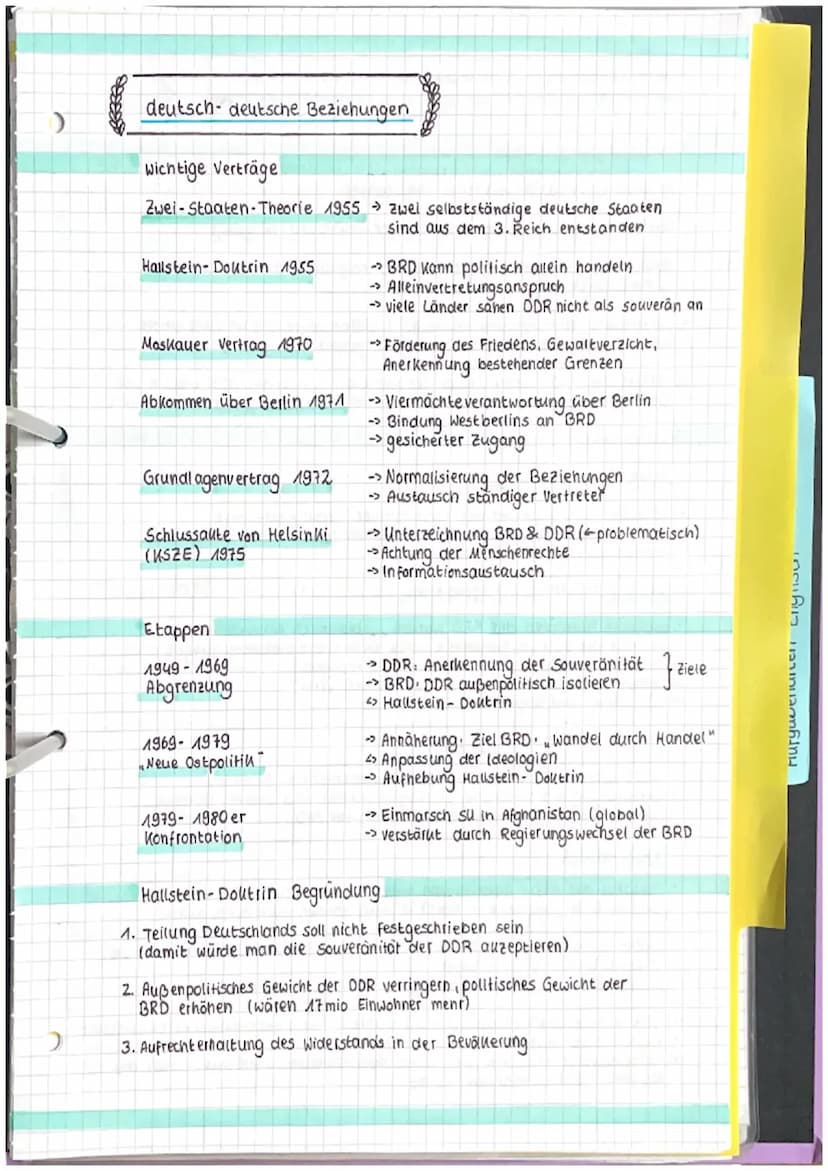 deutsch- deutsche Beziehungen
wichtige Verträge
Zwei-Staaten-Theorie 1955 → zwei selbstständige deutsche Staaten
sind aus dem 3. Reich entstanden
Hallstein-Doktrin 1955 → BRD kann politisch allein handeln
→ Alleinvertretungsanspruch
→ viele Länder sahen DDR nicht als souverän an
Moskauer Vertrag 1970 → Förderung des Friedens, Gewaltverzicht,
Anerkennung bestehender Grenzen
Abkommen über Berlin 1971 → Viermächteverantwortung über Berlin
→ Bindung Westberlins an BRD
→ gesicherter Zugang
Grundlagenvertrag 1972 → Normalisierung der Beziehungen
→ Austausch ständiger Vertreter
Schlussakte von Helsinki → Unterzeichnung BRD & DDR (← problematisch)
(KSZE) 1975 → Achtung der Menschenrechte
→ Informationsaustausch
Etappen
1949 - 1969 → DDR: Anerkennung der Souveränität } Ziele
Abgrenzung → BRD: DDR außenpolitisch isolieren
↳ Hallstein-Doktrin
1969 - 1979 → Annäherung: Ziel BRD: „Wandel durch Handel"
„Neue Ostpolitik" ↳ Anpassung der Ideologien
→ Aufhebung Hallstein-Doktrin
1979 - 1980er → Einmarsch SU in Afghanistan (global)
Konfrontation → verstärkt durch Regierungswechsel der BRD
Hallstein-Doktrin Begründung
1. Teilung Deutschlands soll nicht festgeschrieben sein
(damit würde man die Souveränität der DDR akzeptieren)
2. Außenpolitisches Gewicht der DDR verringern, politisches Gewicht der
BRD erhöhen (wären 17mio Einwohner mehr)
3. Aufrechterhaltung des Widerstands in der Bevölkerung
Englisch